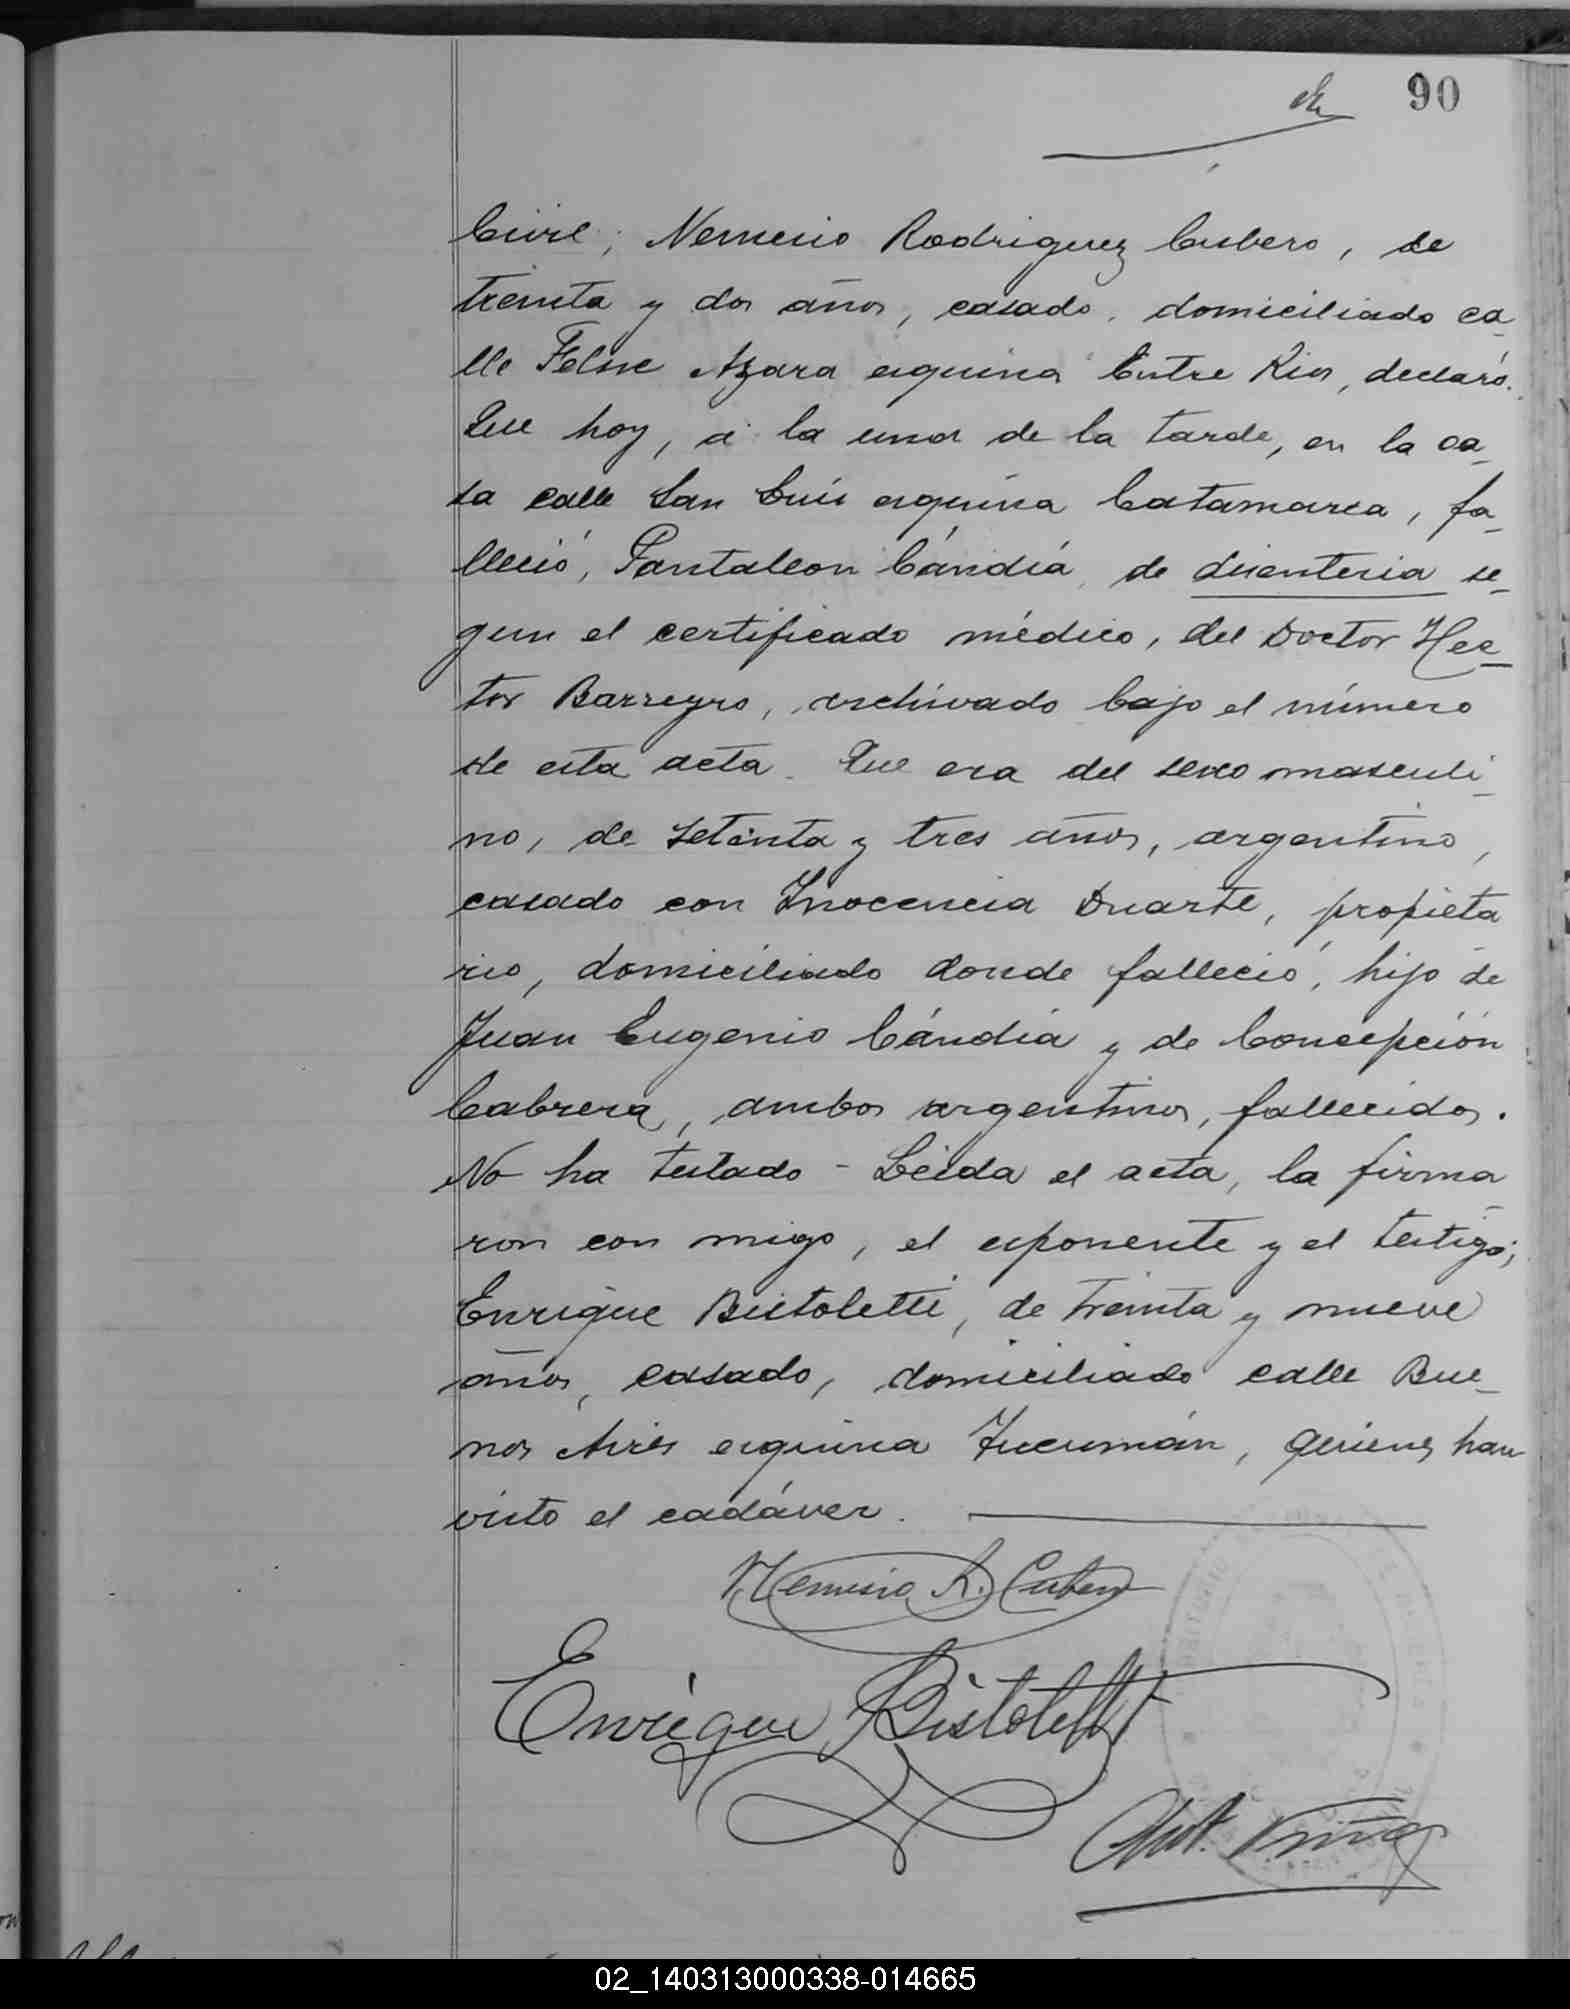 90
Civil; Nemesio Rodriguez Cubero, de
treinta y dos años, casado, domiciliado ca-
lle Felix Azara esquina Entre Rios, declaró:
Que hoy, á la una de la tarde, en la ca-
sa calle San Luis esquina Catamarca, fa-
lleció, Pantaleon Cándia, de disenteria se-
gun el certificado médico, del Doctor Hec-
tor Barreyro, archivado bajo el número
de esta acta. Que era del sexo masculi-
no, de setenta y tres años, argentino,
casado con Inocencia Duarte, propieta
rio, domiciliado donde falleció, hijo de
Juan Eugenio Cándia y de Concepción
Cabrera, ambos argentinos, fallecidos.
No ha testado - Leida el acta, la firma-
ron con migo, el exponente y el testigo;
Enrique Bistoletti, de treinta y nueve
años, casado, domiciliado calle Bue-
nos Aires esquina Tucumán, quienes han
visto el cadáver.
Nemesio R. Cubero
Enrique Bistoletti
02_140313000338-014665